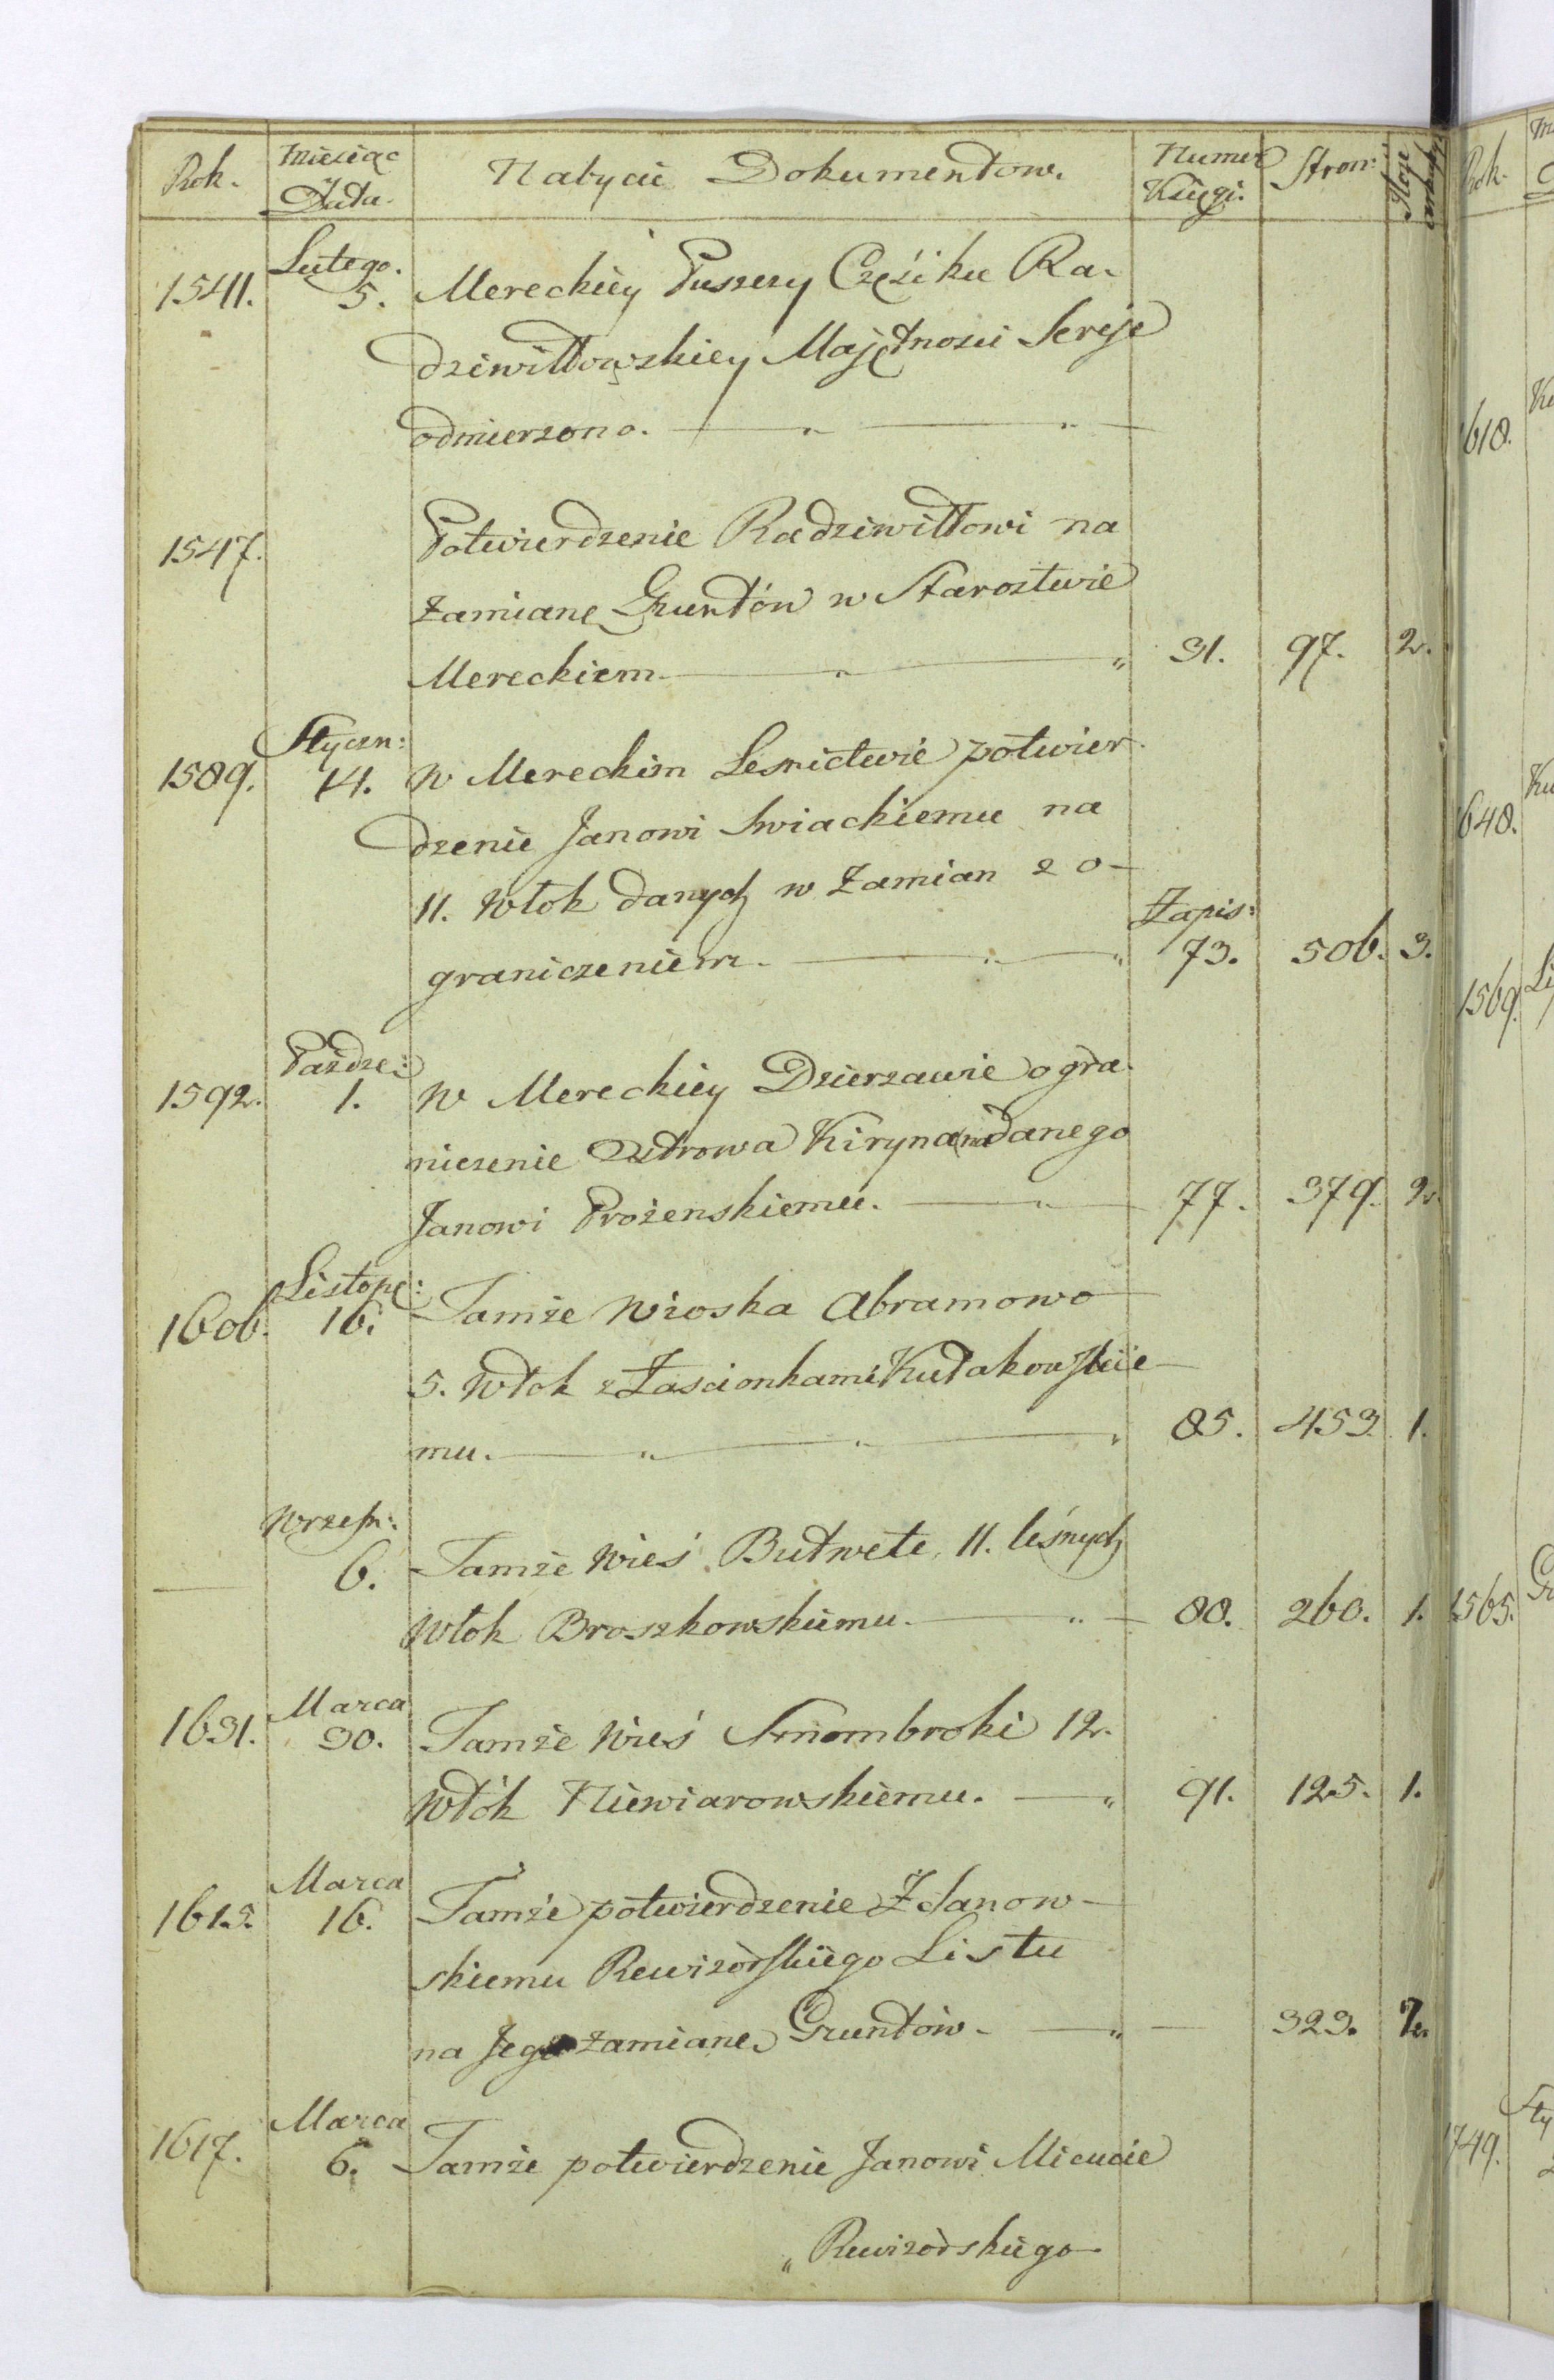 Rok. Miesiąc Data. Nabycie Dokumentow. Numer Księgi. Stron:
Lutego.
1541. 5. Mereckiey Puszczy Cześć ku Ra-
dziwiłłowskiey Majętnosci Sereje
odmierzono.
1547. Potwierdzenie Radziwiłłowi na
Zamianę Gruntów w Starostwie
Mereckiem. 31. 97. 2.
Styczn:
1589. 14. W Mereckim Lesnictwie potwier-
dzenie Janowi Swiackiemu na
11. Włok danych w Zamian z o-
Zapis:
graniczeniem. 73. 506. 3.
Paźdze:
1592. 1. W Mereckiey Dzierzawie ogra-
niczenie Ostrowa danego
Janowi Prożenskiemu. 77. 379. 2.
Listop:
1606. 16. Tamże Wioska Abramowo
5. Włok z Zascionkami Kułakowskie-
mu. 85. 453. 1.
Wrześn:
— 6. Tamże Wieś Butwete, 11. leśnych
Włok Broszkowskiemu. 88. 260. 1.
Marca
1631. 30. Tamże Wieś 12.
Włók Niewiarowskiemu. 91. 125. 1.
Marca
1615. 16. Tamże potwierdzenie Zdanow-
skiemu Rewizorskiego Listu
na Jego zamianę Gruntów. — 323.
Marca
1617. 6. Tamże potwierdzenie Janowi Micucie
„ Rewizorskiego
Rok.
1618.
1648.
1569.
1565.
1749.